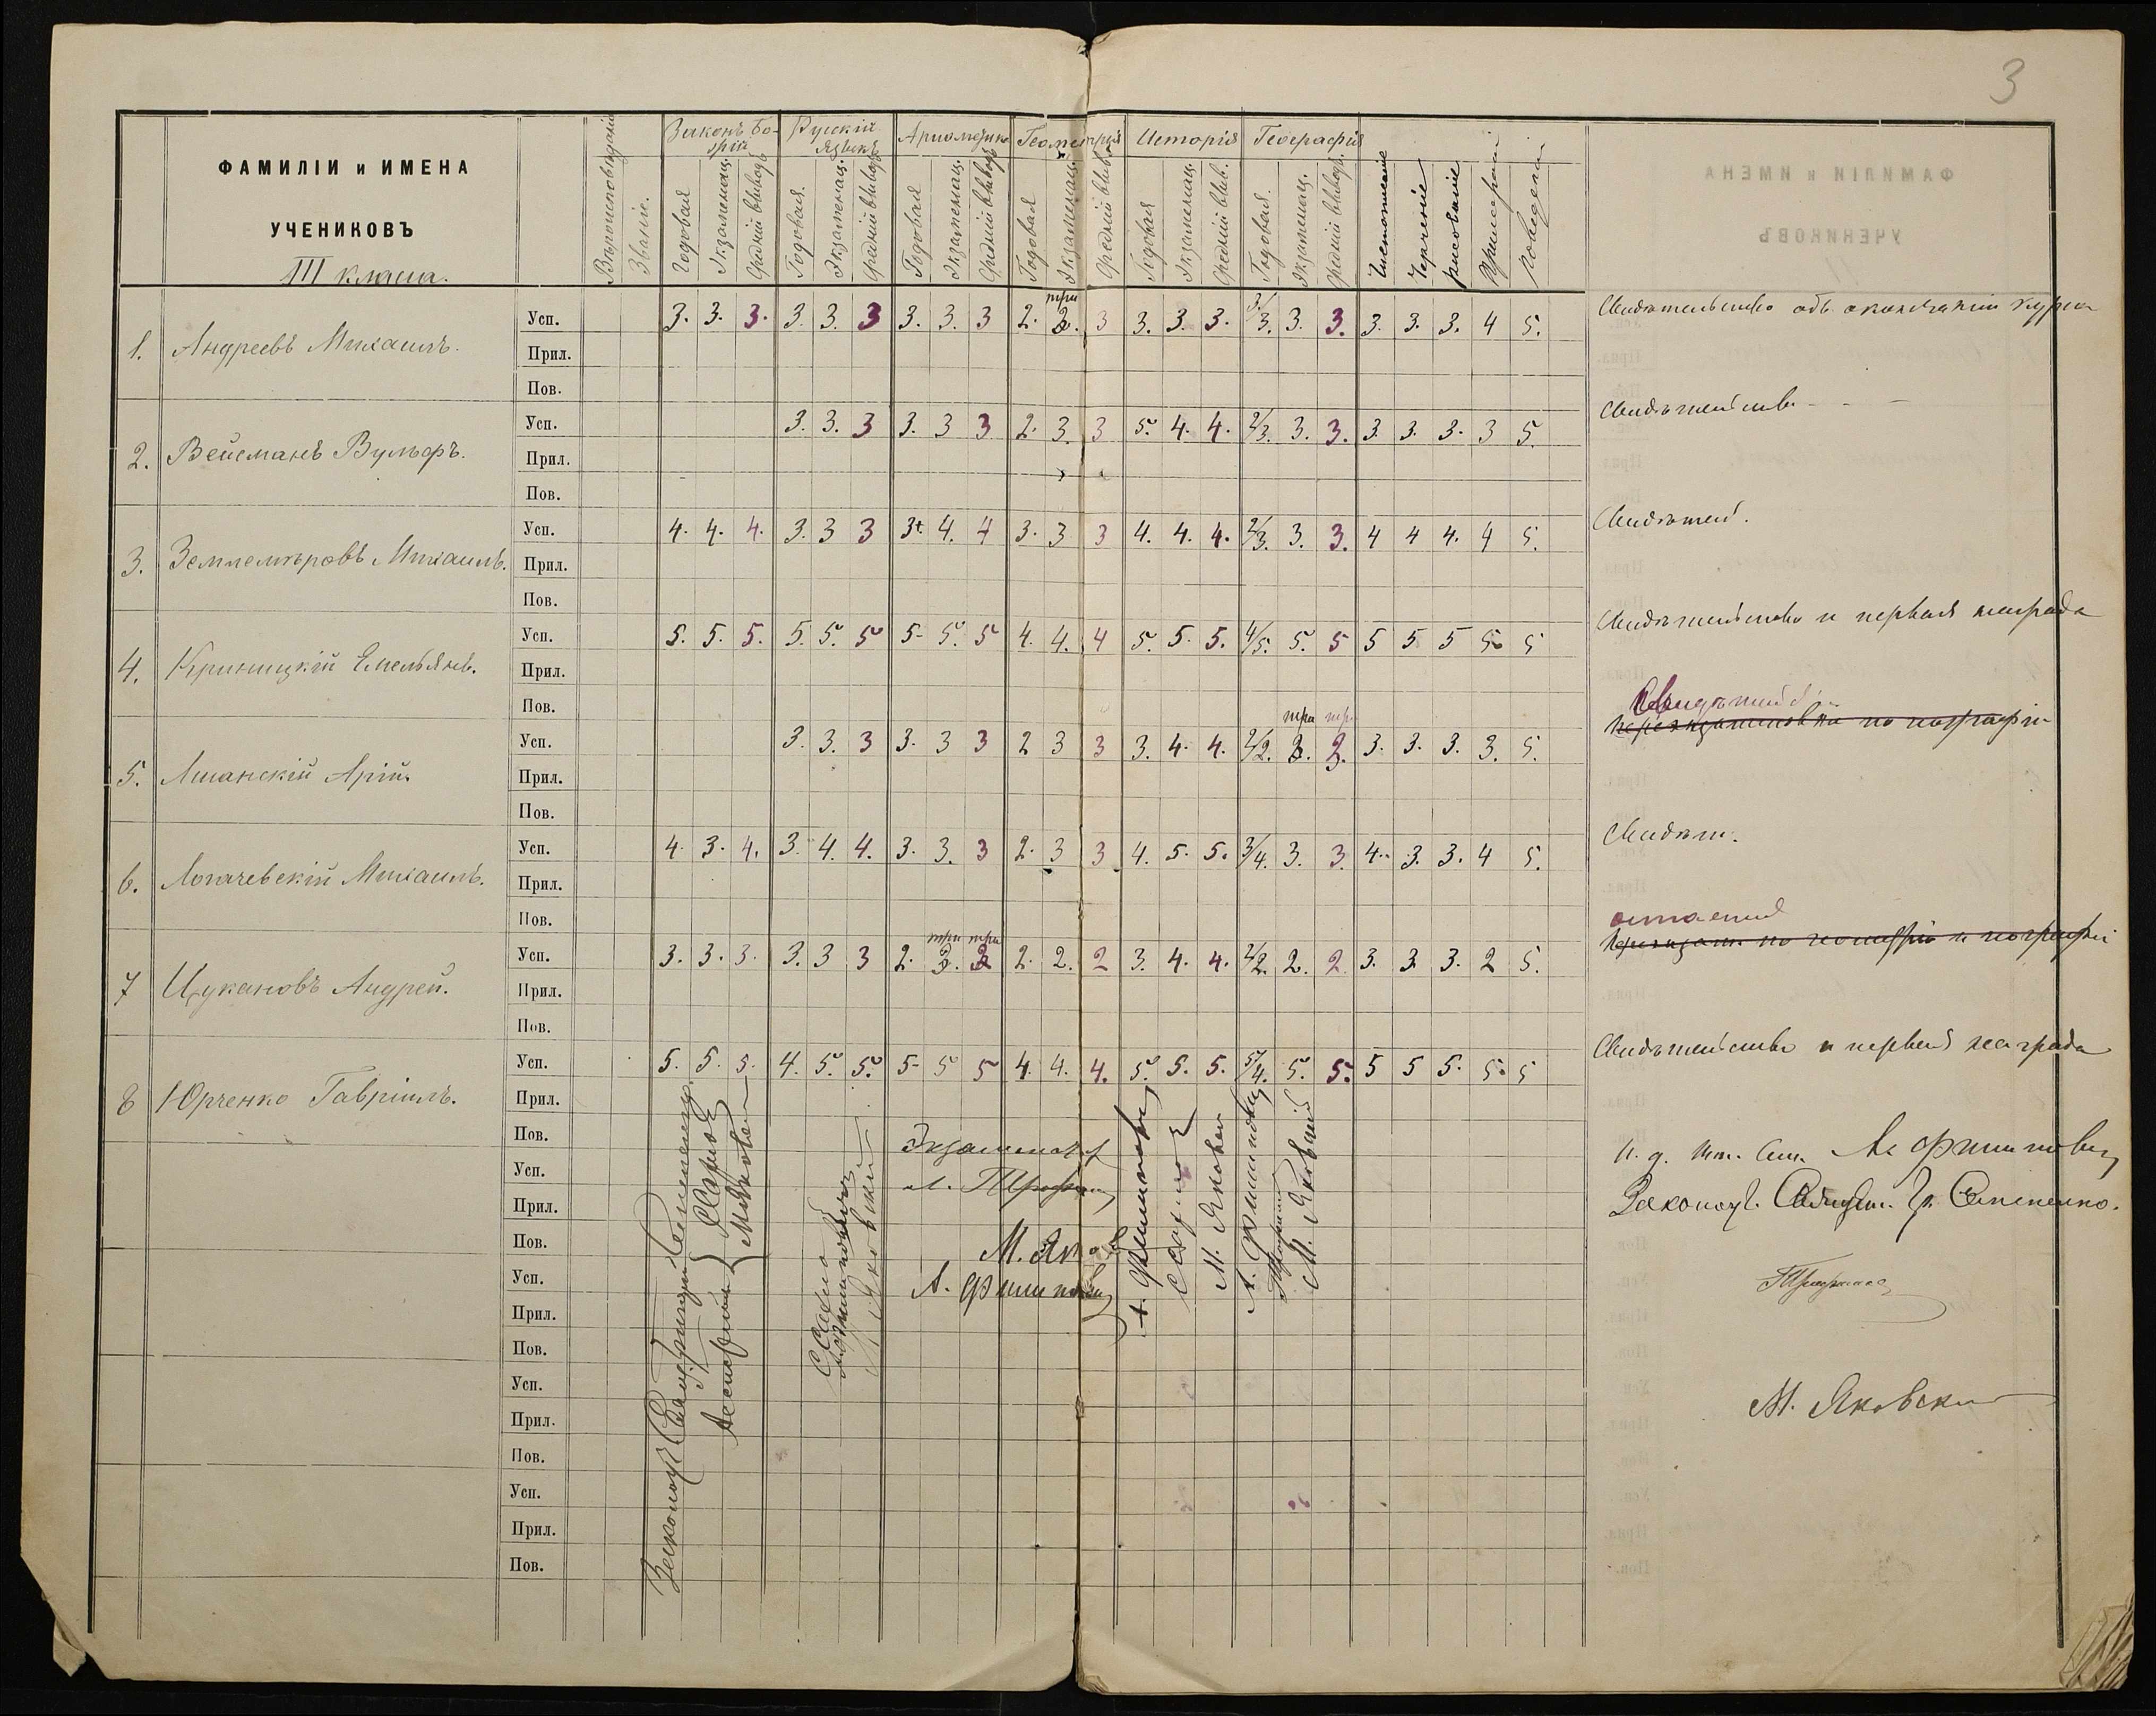 3
ФАМИЛІИ и ИМЕНА
УЧЕНИКОВЪ
III класса.
Вѣроисповѣданіе
Званіе.
Законъ Божій
Годовая Экзаменац. Средній выводъ
Русскій языкъ
Годовая. Экзаменац. Средній выводъ
Ариѳметика
Годовая Экзаменац. Средній выводъ
Геометрія
Годовая Экзаменац. Средній выводъ
Исторія
Годовая Экзаменац. Средній выв.
Географія
Годовая. Экзаменац. Средній выводъ.
Чистописаніе
Черченіе
рисованіе
Прилежаніе
Поведеніе
три
1. Андреевъ Михаилъ. Усп. 3. 3. 3. 3. 3. 3 3. 3. 3 2. 3. 3 3. 3. 3. 3/3. 3. 3. 3. 3. 3. 4 5. Свидѣтельство объ окончаніи курса
Прил.
Пов.
2. Вейсманъ Вульфъ. Усп. 3. 3. 3 3. 3 3 2. 3. 3 5. 4. 4. 2/3. 3. 3. 3. 3. 3. 3 5. Свидѣтельство - - -
Прил.
Пов.
3. Землемѣровъ Михаилъ. Усп. 4. 4. 4. 3. 3 3 3+ 4. 4 3. 3 3 4. 4. 4. 2/3. 3. 3. 4 4 4. 4 5. Свидѣтел.
Прил.
Пов.
4. Криницкій Емельянъ. Усп. 5. 5. 5. 5. 5. 5 5- 5. 5 4. 4. 4 5. 5. 5. 4/5. 5. 5 5 5 5 5 5 Свидѣтельство и первая награда
Прил.
Пов.
три три
Свидѣтельс
переэкзаменовка по географіи
5. Лианскій Арій. Усп. 3. 3. 3 3. 3 3 2 3 3 3. 4. 4. 2/2. 3. 3. 3. 3. 3. 3. 5.
Прил.
Пов.
6. Логачевскій Михаилъ. Усп. 4. 3. 4. 3. 4. 4. 3. 3. 3 2. 3 3 4. 5. 5. 3/4. 3. 3. 4. 3. 3. 4 5. Свидѣт.
Прил.
Пов.
три три
остается
Переэкзам. по геометріи и географіи
7 Цукановъ Андрей. Усп. 3. 3. 3. 3. 3 3 2. 3. 3 2. 2. 2 3. 4. 4. 2/2. 2. 2. 3. 3 3. 2 5.
Прил.
Пов.
8 Юрченко Гавріилъ. Усп. 5. 5. 5. 4. 5. 5. 5- 5 5 4. 4. 4. 5. 5. 5. 5/4. 5. 5. 5 5 5. 5. 5 Свидѣтельство и первая награда
Прил.
Пов.
Усп.
Прил.
Пов.
Усп.
Прил.
Пов.
Усп.
Прил.
Пов.
Усп.
Прил.
Пов.
Ассистенты
А. Филиповичъ
М. Яковскій
Законоуч. Священ. Гр. Семененко.
М. Яковскій